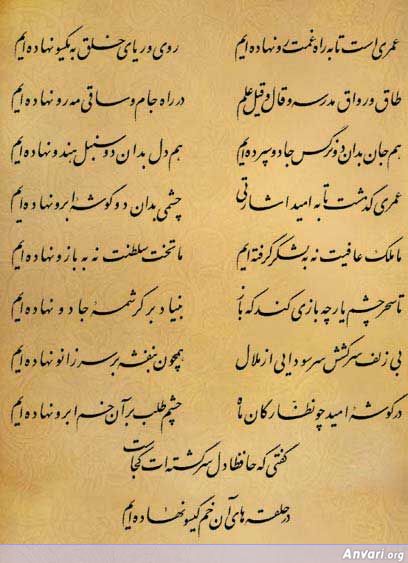 عمری است تا به راه غمت رو نهاده ایم روی و ریای خلق به یکسو نهاده ایم
طاق و رواق مدرسه و قال و قیل علم در راه جام و ساقی مه رو نهاده ایم
هم جان بدان دو نرگس جادو سپرده ایم هم دل بدان دو سنبل هندو نهاده ایم
عمری گذشت تا به امید اشارتی چشمی بدان دو گوشهٔ ابرو نهاده ایم
ما ملک عافیت نه به لشکر گرفته ایم ما تخت سلطنت نه به بازو نهاده ایم
تا سحر چشم یار چه بازی کند که باز بنیاد بر کرشمهٔ جادو نهاده ایم
بی زلف سرکشش سر سودایی از ملال همچون بنفشه بر سر زانو نهاده ایم
در گوشهٔ امید چو نظارگان ماه چشم طلب بر آن خم ابرو نهاده ایم
گفتی که حافظا دل سرگشته ات کجاست
در حلقه های آن خم گیسو نهاده ایم
Anvari.org